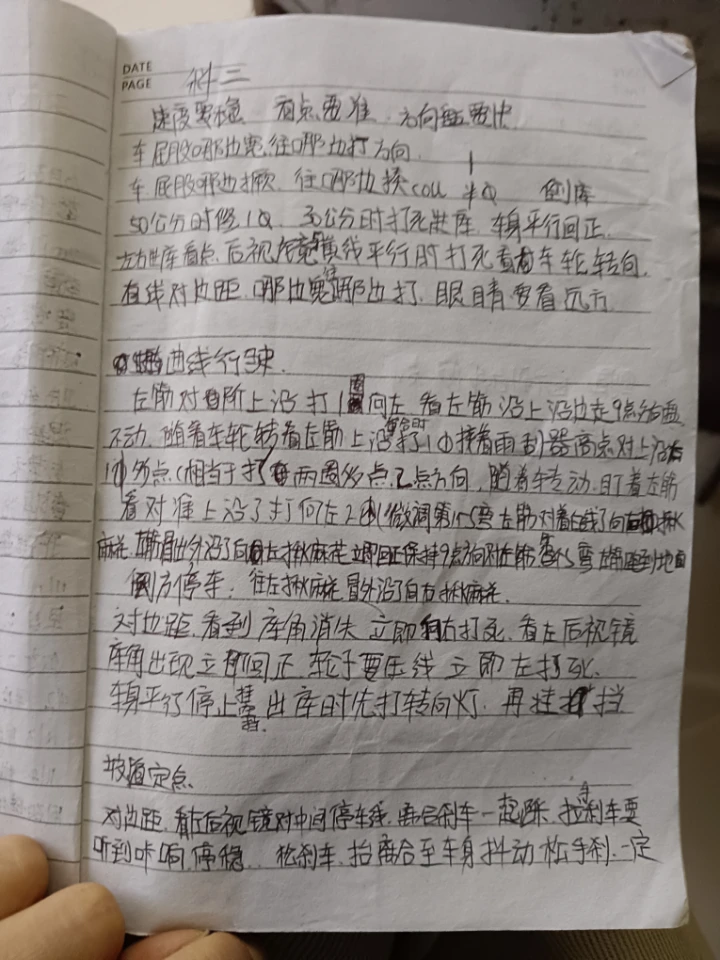 DATE
PAGE
科三
速度要稳 看点要准 方向盘要快
车屁股哪边宽往哪边打方向
车屁股哪边撅 往哪边揍cou 半Q 倒库
50公分时修1Q 30公分时打死出库 车身平行回正
左力出库看点 后视镜 横线平行时打死看 车轮转向
直线对边距 哪边宽往哪边打 眼睛要看远方
曲线行驶
左筋对 阶上沿打1圈向左 看左筋沿上沿边走9点 盘
不动 随着车轮转看左筋上沿 打1 接着雨刮器高点对上沿右
多点(相当于打 两圈多点 乙点方向 随着车转动 盯着左筋
看对准上沿了打 左2 (微调第 弯左筋对着 线了向 揪
麻花 冒出外沿了自 左揪麻花立即回正保持9点方向对左筋 弯 到地
倒方停车 往左揪麻花冒外沿了自右揪麻花
对边距 看到库角消失 立即 右打死 看左后视镜
库角出现立即回正 轮子要压线 立即左打死
车身平行停止 出库时先打转向灯 再挂 挡
坡道定点
对边距 看左后视镜对中间停车线 离合刹车一起踩 拉手刹车要
听到咔响 停稳 松刹车 抬离合至车身抖动松手刹 一定